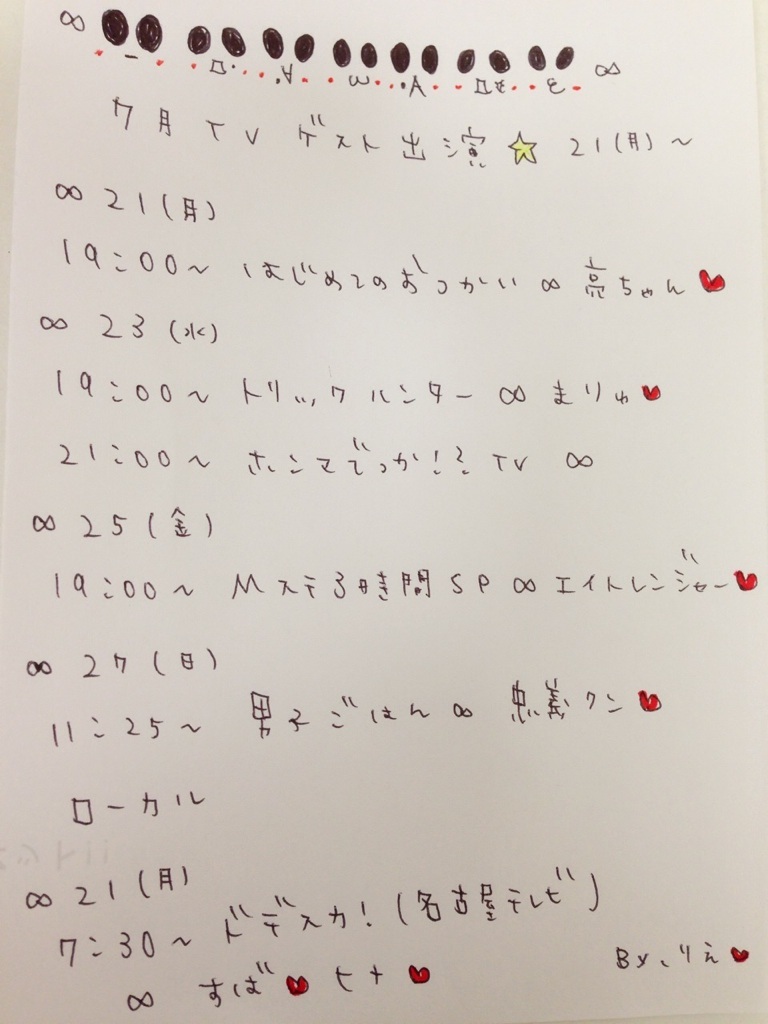 ∞ ∞
7月 TV ゲスト出演☆ 21(月)~
∞ 21(月)
19:00~ はじめてのおつかい ∞ 亮ちゃん♥
∞ 23(水)
19:00~ トリックハンター ∞ まりゅ♥
21:00~ ホンマでっか!? TV ∞
∞ 25(金)
19:00~ Mステ3時間SP ∞ エイトレンジャー♥
∞ 27(日)
11:25~ 男子ごはん ∞ 忠義クン♥
ローカル
∞ 21(月)
7:30~ ドデスカ!(名古屋テレビ)
∞ すば♥ ヒナ♥
By、りえ♥